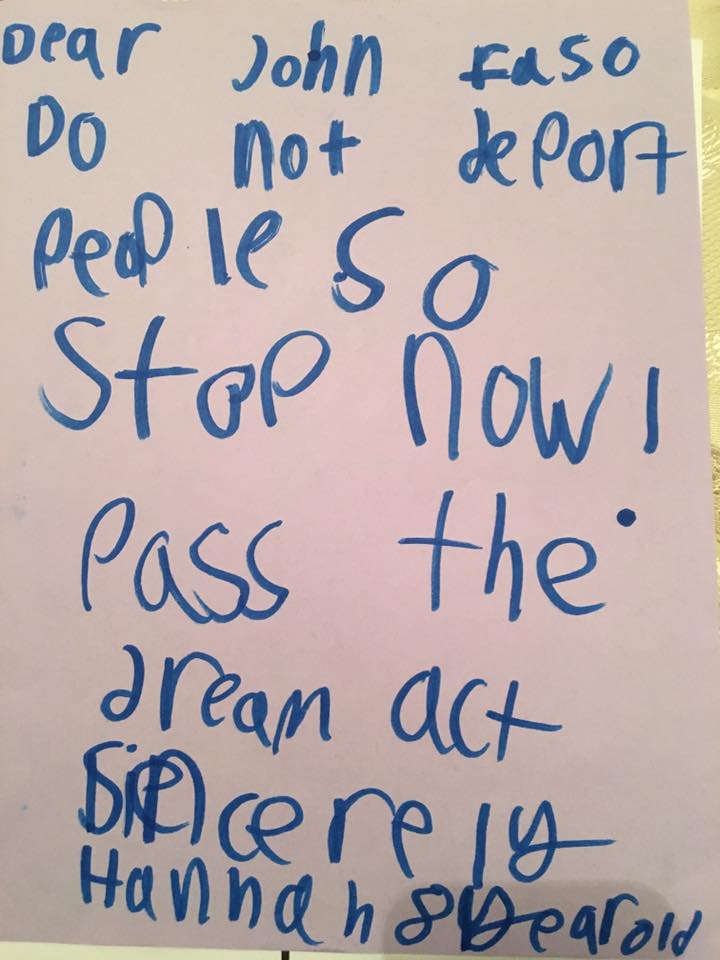 Dear John Faso
Do not deport
people so
Stop now!
pass the
dream act
Sincerely
Hannah 8 year old